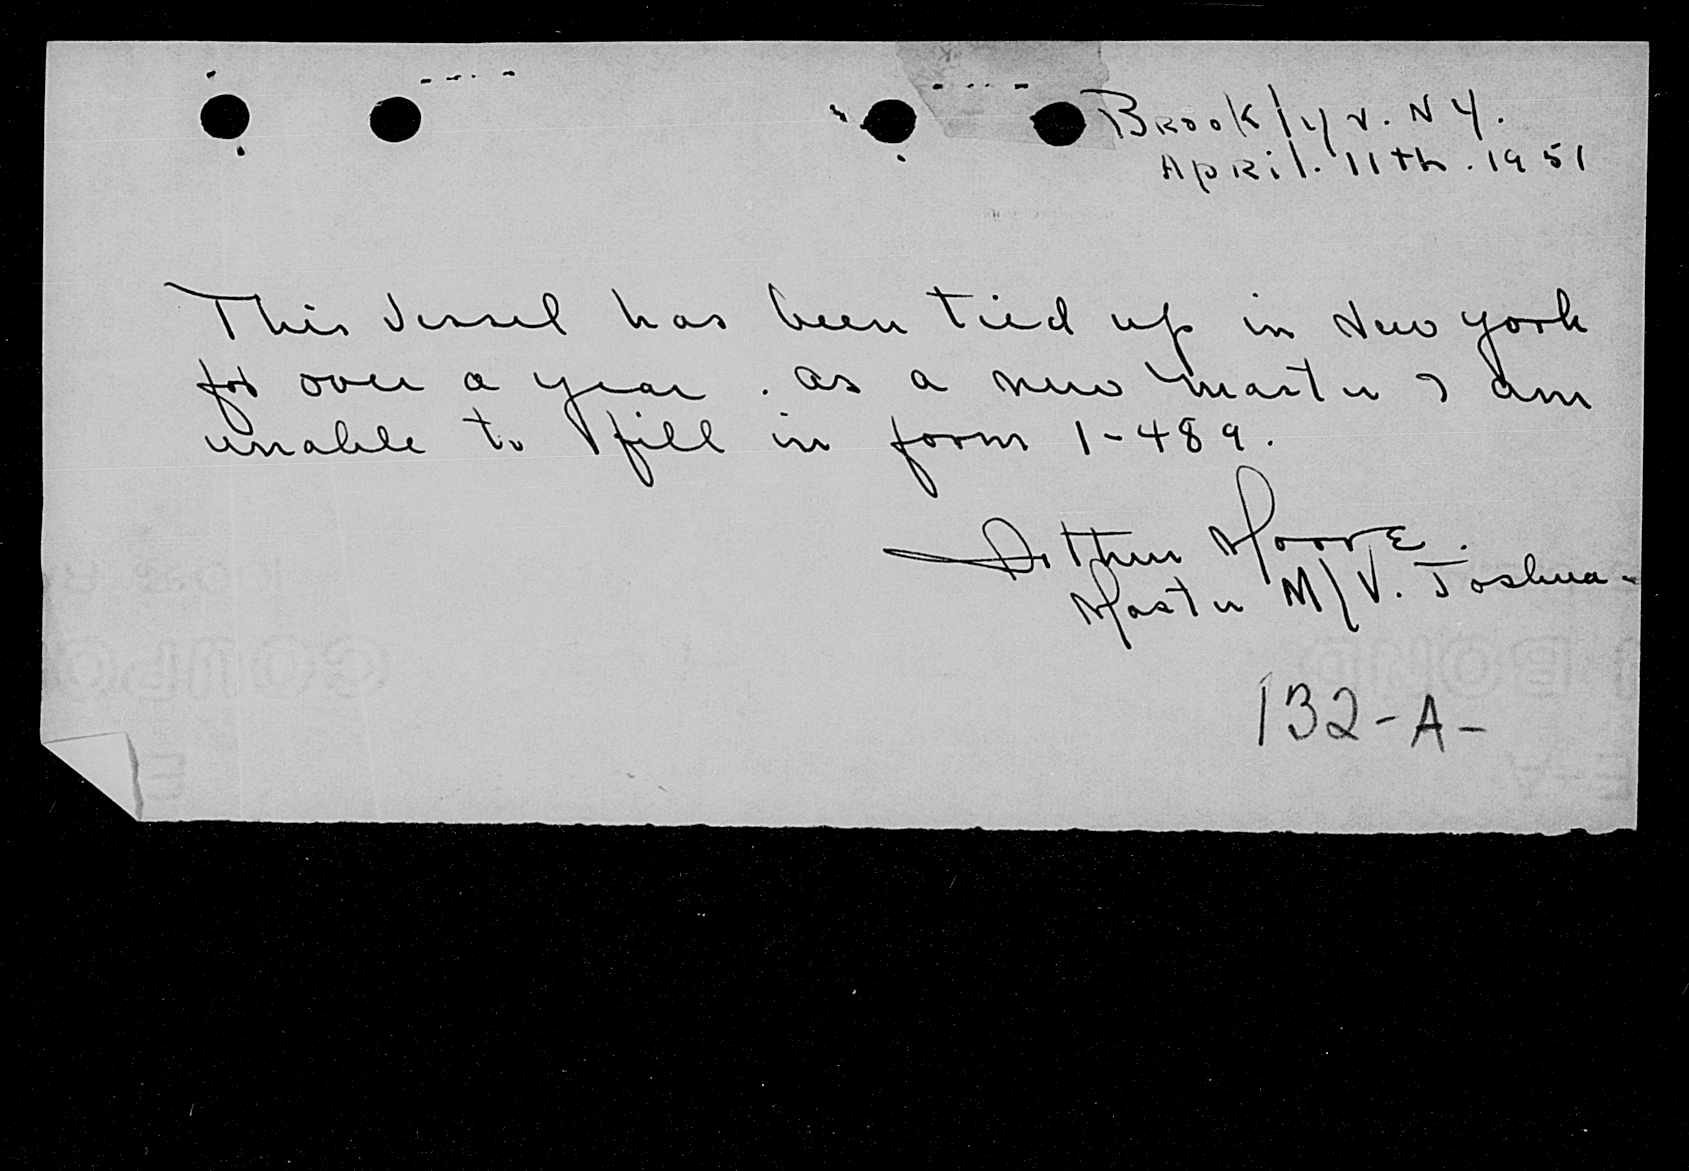 Brooklyn. N Y.
April. 11th. 1951
This vessel has been tied up in New York
for over a year. as a new Master I am
unable to fill in form 1-489.
Arthur Moore.
Master M/V. Joshua-
132-A-